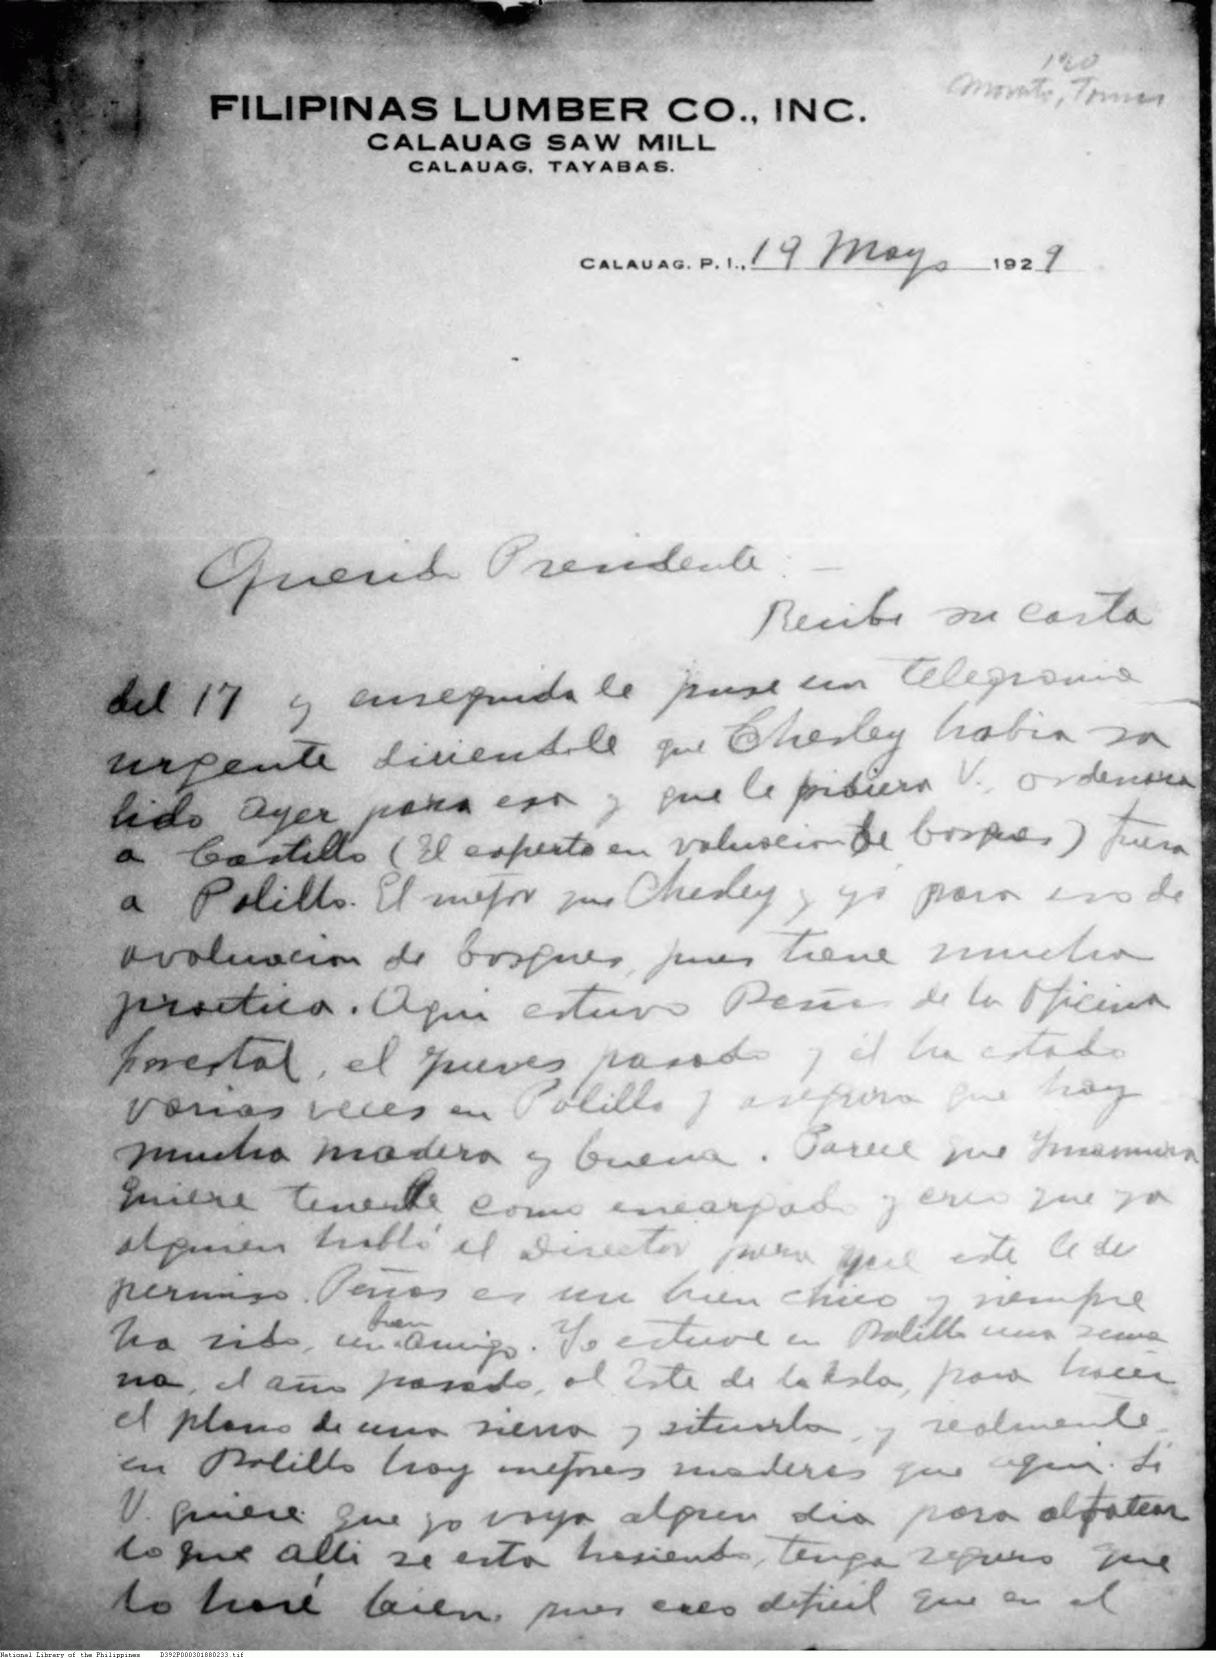 190
Morato, Tomas
FILIPINAS LUMBER CO., INC.
CALAUAG SAW MILL
CALAUAG, TAYABAS.
CALAUAG, P. I., 19 Mayo 1929
Querido Presidente: —
Recibi su carta
del 17 y enseguida le puse un telegrama
urgente diciendole que Chesley habia sa
lido ayer para esa y que le pidiera V., ordenara
a Castillo (El experto en valuacion de bosques) fuera
a Polillo. El mejor que Chesley y yo para eso de
avaluacion de bosques, pues tiene mucha
practica. Aqui estuvo Peñas de la Oficina
forestal, el jueves pasado y él ha estado
varias veces en Polillo y asegura que hay
mucha madera y buena. Parece que
quiere tenerle como encargado y creo que ya
alguien habló el Director para que este le de
permiso. Peñas es un bien chico y siempre
ha sido, un buen amigo. Yo estuve en Polillo una sema
na, el año pasado, al Este de la Isla, para hacer
el plano de una sierra y situarla, y realmente
en Polillo hay mejores maderas que aqui. Si
V. quiere que yo vaya algun dia para
lo que alli se esta haciendo, tenga seguro que
lo haré bien, pues creo dificil que en el
National Library of the Philippines D392P000301880233.tif